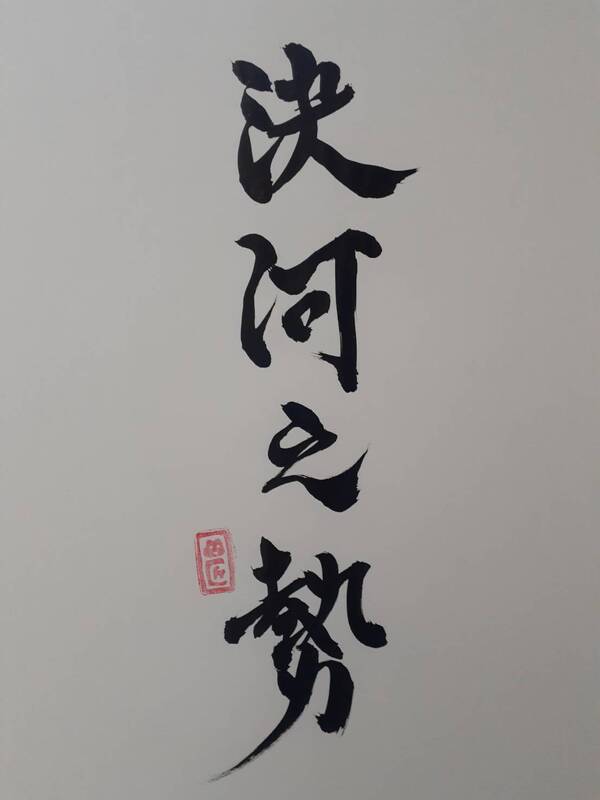 決河之勢